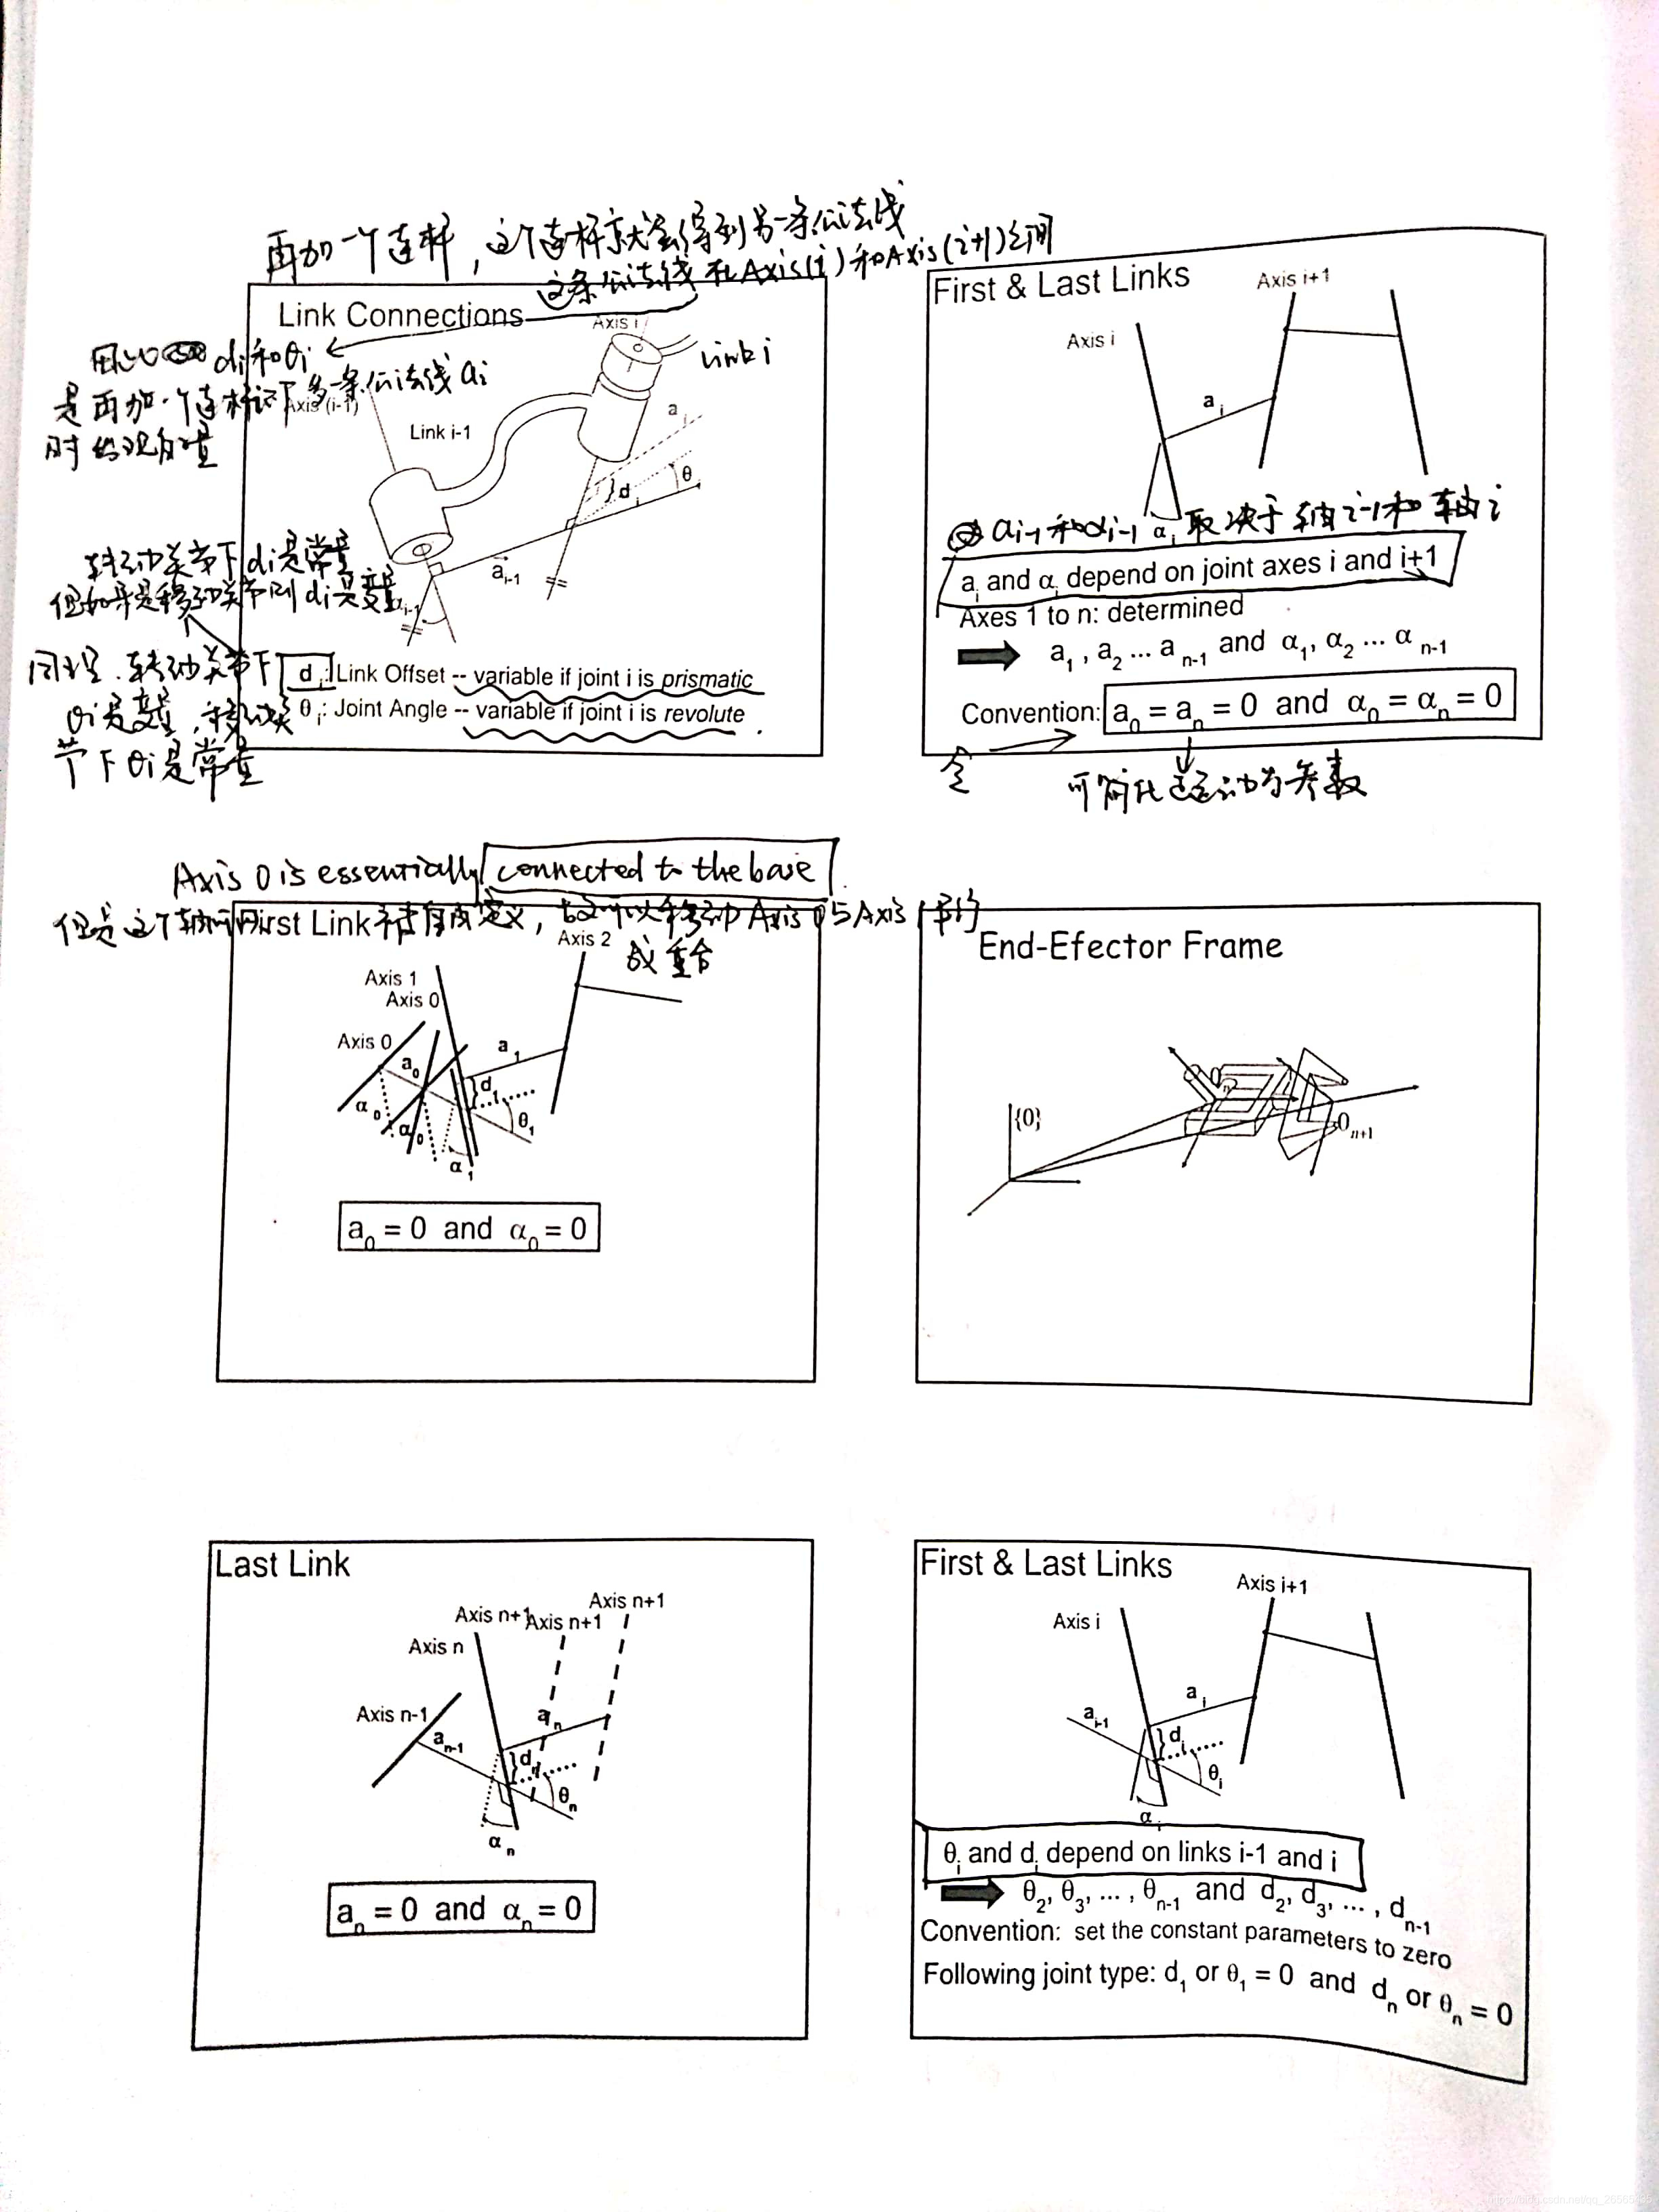 再加一个连杆，这个连杆就会得到另一条公法线
这条公法线在Axis(i)和Axis(i+1)之间
Link Connections
Axis i
Link i
di和θi
是再加一个连杆
多一条公法线ai
时的观自量
Axis (i-1)
Link i-1
a i
d i
θ i
a i-1
α i-1
转动关节下di是常量
但如果是移动关节则di是变量
同理，转动关节下
θi是变量，移动关
节下θi是常量
d i: Link Offset -- variable if joint i is prismatic
θ i: Joint Angle -- variable if joint i is revolute
First & Last Links
Axis i+1
Axis i
a i
α i
ai-1和αi-1 取决于轴i-1和轴i
a i and α i depend on joint axes i and i+1
Axes 1 to n: determined
a 1 , a 2 ... a n-1 and α 1, α 2 ... α n-1
Convention: a 0 = a n = 0 and α 0 = α n = 0
令
可简化运动参数
Axis 0 is essentially connected to the base
但是这个轴可自由定义，可以移动Axis 0与Axis 1
或重合
First Link
Axis 2
Axis 1
Axis 0
Axis 0
a 0
a 1
d 1
θ 1
α 0
α 0
α 1
a 0 = 0 and α 0 = 0
End-Efector Frame
{0}
0 n
0 n+1
Last Link
Axis n+1
Axis n+1
Axis n+1
Axis n
Axis n-1
a n-1
a n
d n
θ n
α n
a n = 0 and α n = 0
First & Last Links
Axis i+1
Axis i
a i
a i-1
d i
θ i
α i
θ i and d i depend on links i-1 and i
θ 2, θ 3, ... , θ n-1 and d 2, d 3, ... , d n-1
Convention: set the constant parameters to zero
Following joint type: d 1 or θ 1 = 0 and d n or θ n = 0